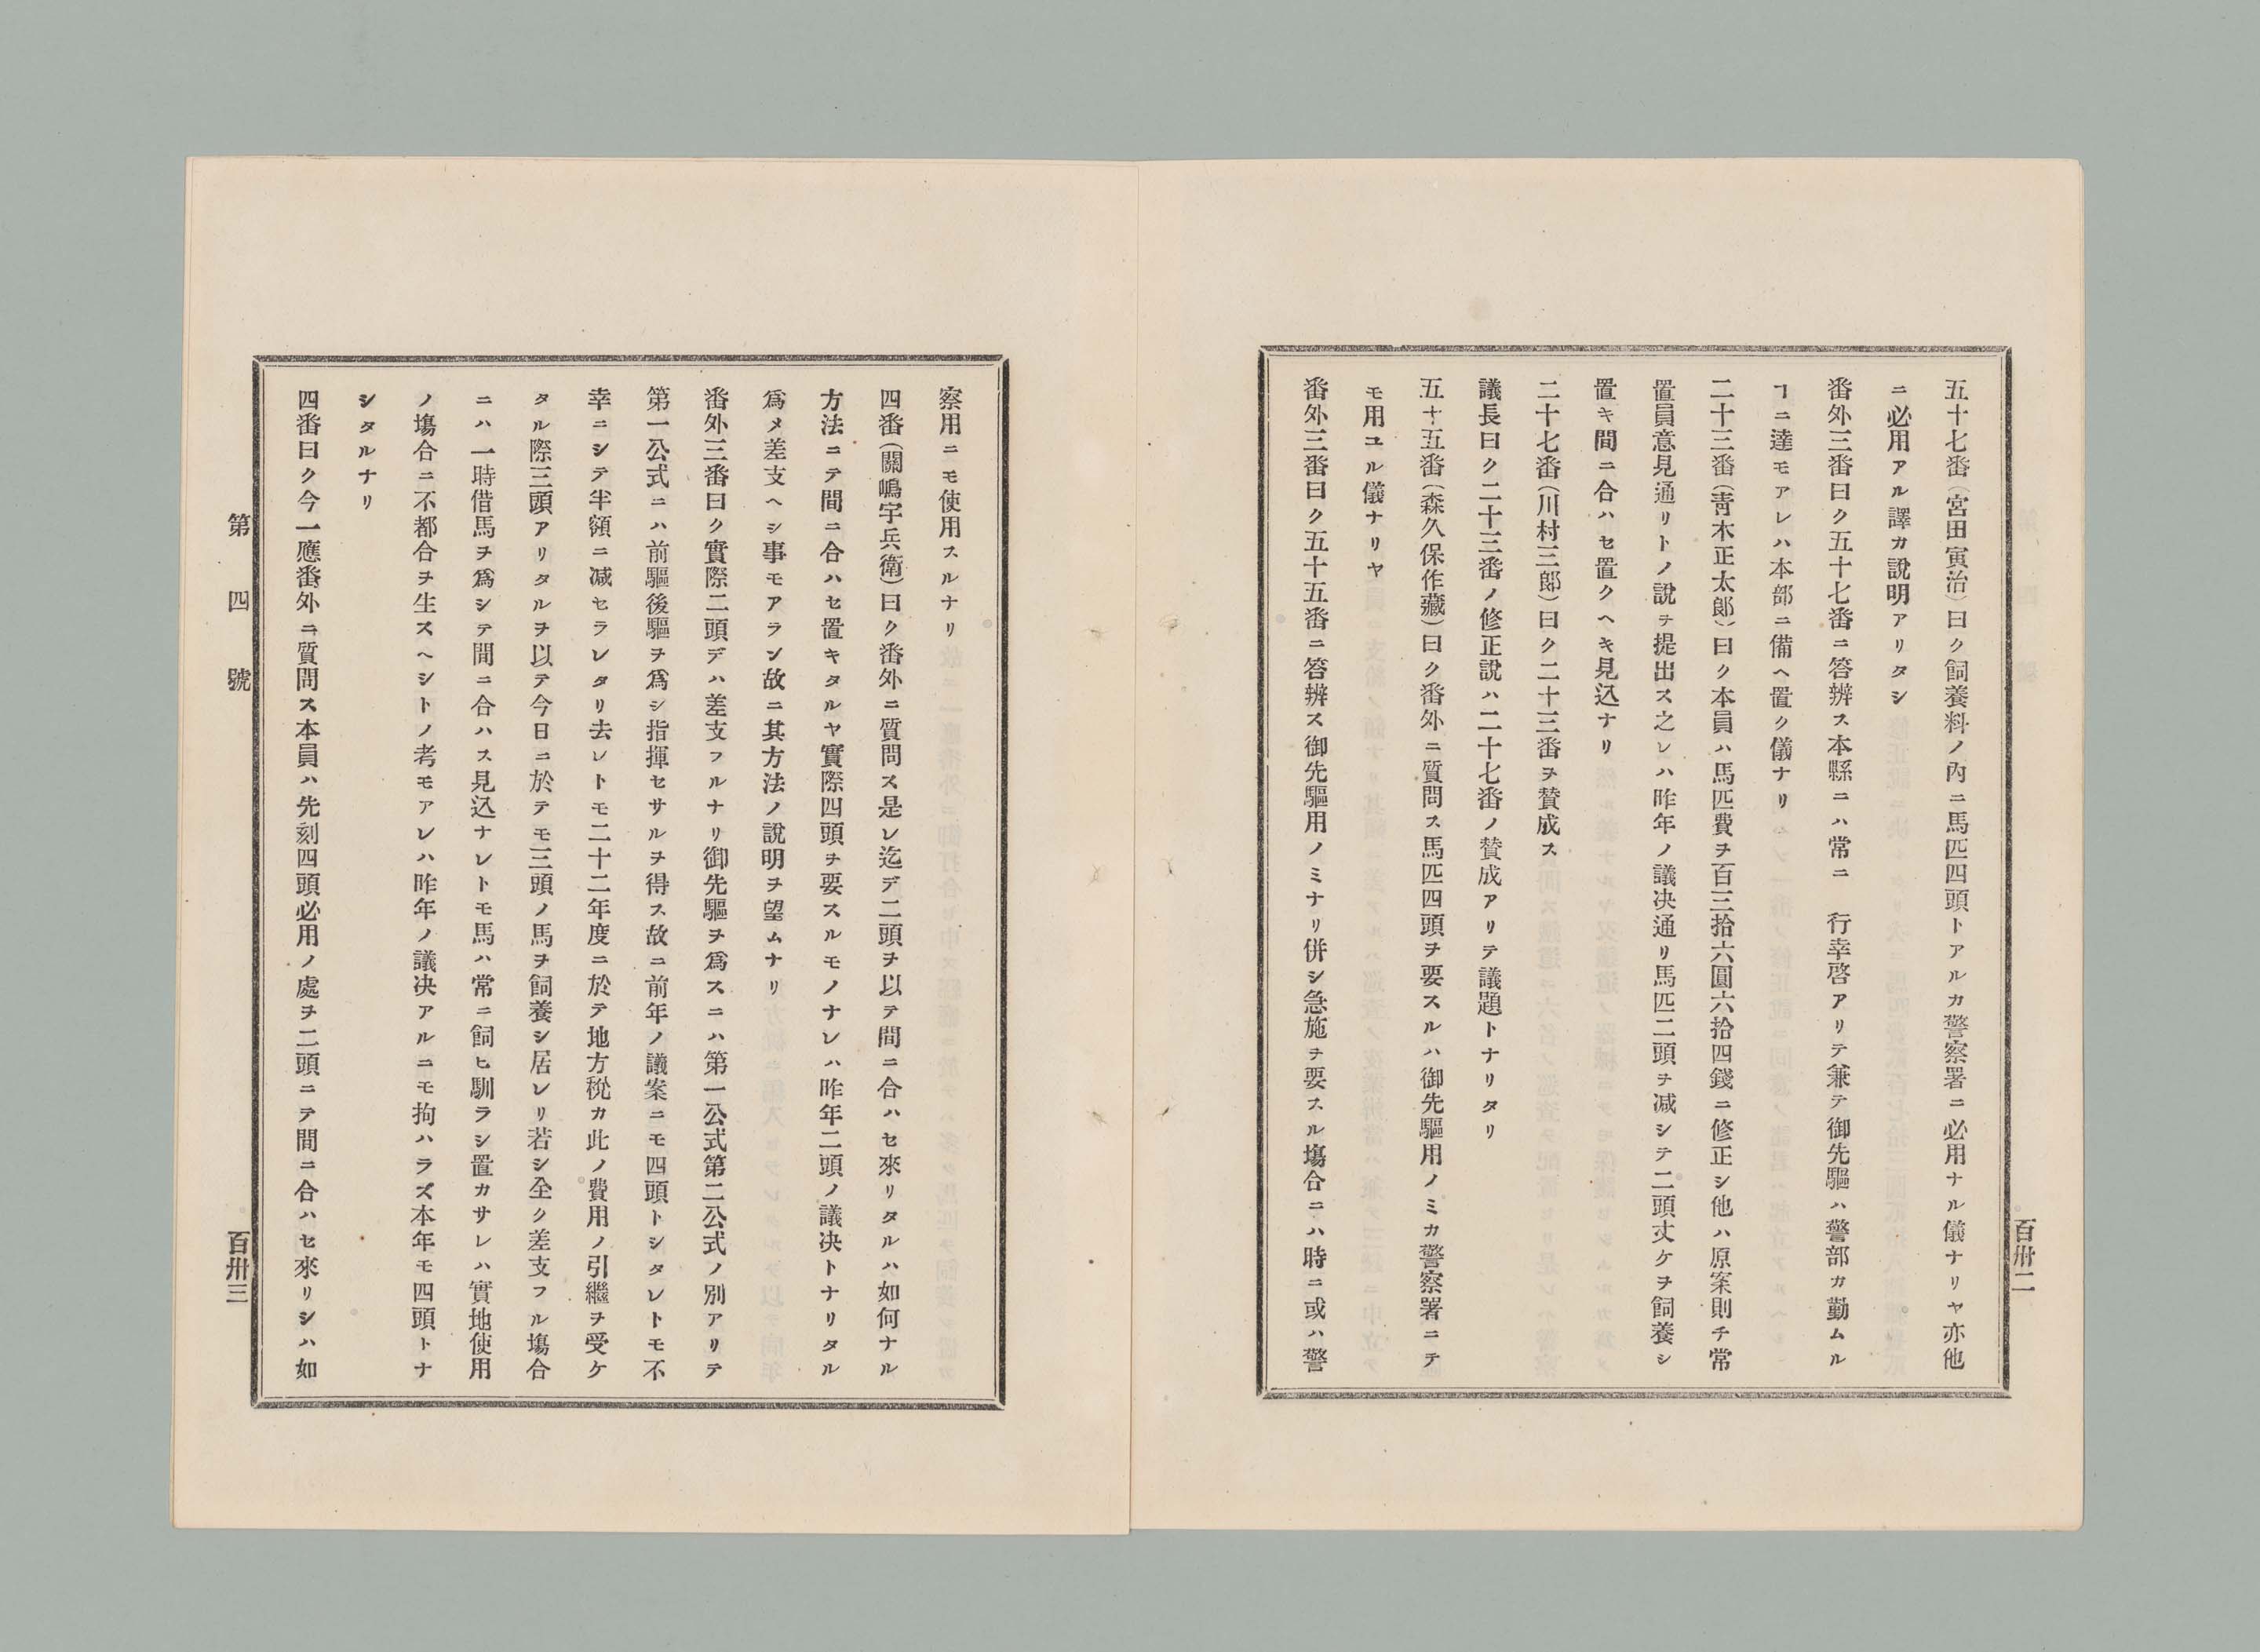 五十七番(宮田寅治)曰ク飼養料ノ內ニ馬匹四頭トアルカ警察署ニ必用ナル儀ナリヤ亦他
ニ必用アル譯カ說明アリタシ
番外三番曰ク五十七番ニ答辨ス本縣ニハ常ニ　行幸啓アリテ兼テ御先驅ハ警部カ勤ムル
ヿニ達モアレハ本部ニ備ヘ置ク儀ナリ
二十三番(靑木正太郞)曰ク本員ハ馬匹費ヲ百三拾六圓六拾四錢ニ修正シ他ハ原案則チ常
置員意見通リトノ說ヲ提出ス之レハ昨年ノ議决通リ馬匹二頭ヲ減シテ二頭丈ケヲ飼養シ
置キ間ニ合ハセ置クヘキ見込ナリ
二十七番(川村三郞)曰ク二十三番ヲ賛成ス
議長曰ク二十三番ノ修正說ハ二十七番ノ賛成アリテ議題トナリタリ
五十五番(森久保作藏)曰ク番外ニ質問ス馬匹四頭ヲ要スルハ御先驅用ノミカ警察署ニテ
モ用ユル儀ナリヤ
番外三番曰ク五十五番ニ答辨ス御先驅用ノミナリ併シ急施ヲ要スル塲合ニハ時ニ或ハ警
百卅二
察用ニモ使用スルナリ
四番(關嶋宇兵衛)曰ク番外ニ質問ス是レ迄デ二頭ヲ以テ間ニ合ハセ來リタルハ如何ナル
方法ニテ間ニ合ハセ置キタルヤ實際四頭ヲ要スルモノナレハ昨年二頭ノ議决トナリタル
爲メ差支ヘシ事モアラン故ニ其方法ノ說明ヲ望ムナリ
番外三番曰ク實際二頭デハ差支フルナリ御先驅ヲ爲スニハ第一公式第二公式ノ別アリテ
第一公式ニハ前驅後驅ヲ爲シ指揮セサルヲ得ス故ニ前年ノ議案ニモ四頭トシタレトモ不
幸ニシテ半額ニ减セラレタリ去レトモ二十二年度ニ於テ地方稅カ此ノ費用ノ引繼ヲ受ケ
タル際三頭アリタルヲ以テ今日ニ於テモ三頭ノ馬ヲ飼養シ居レリ若シ全ク差支フル塲合
ニハ一時借馬ヲ爲シテ間ニ合ハス見込ナレトモ馬ハ常ニ飼ヒ馴ラシ置カサレハ實地使用
ノ塲合ニ不都合ヲ生スヘシトノ考モアレハ昨年ノ議决アルニモ拘ハラズ本年モ四頭トナ
シタルナリ
四番曰ク今一應番外ニ質問ス本員ハ先刻四頭必用ノ處ヲ二頭ニテ間ニ合ハセ來リシハ如
第四號
百卅三